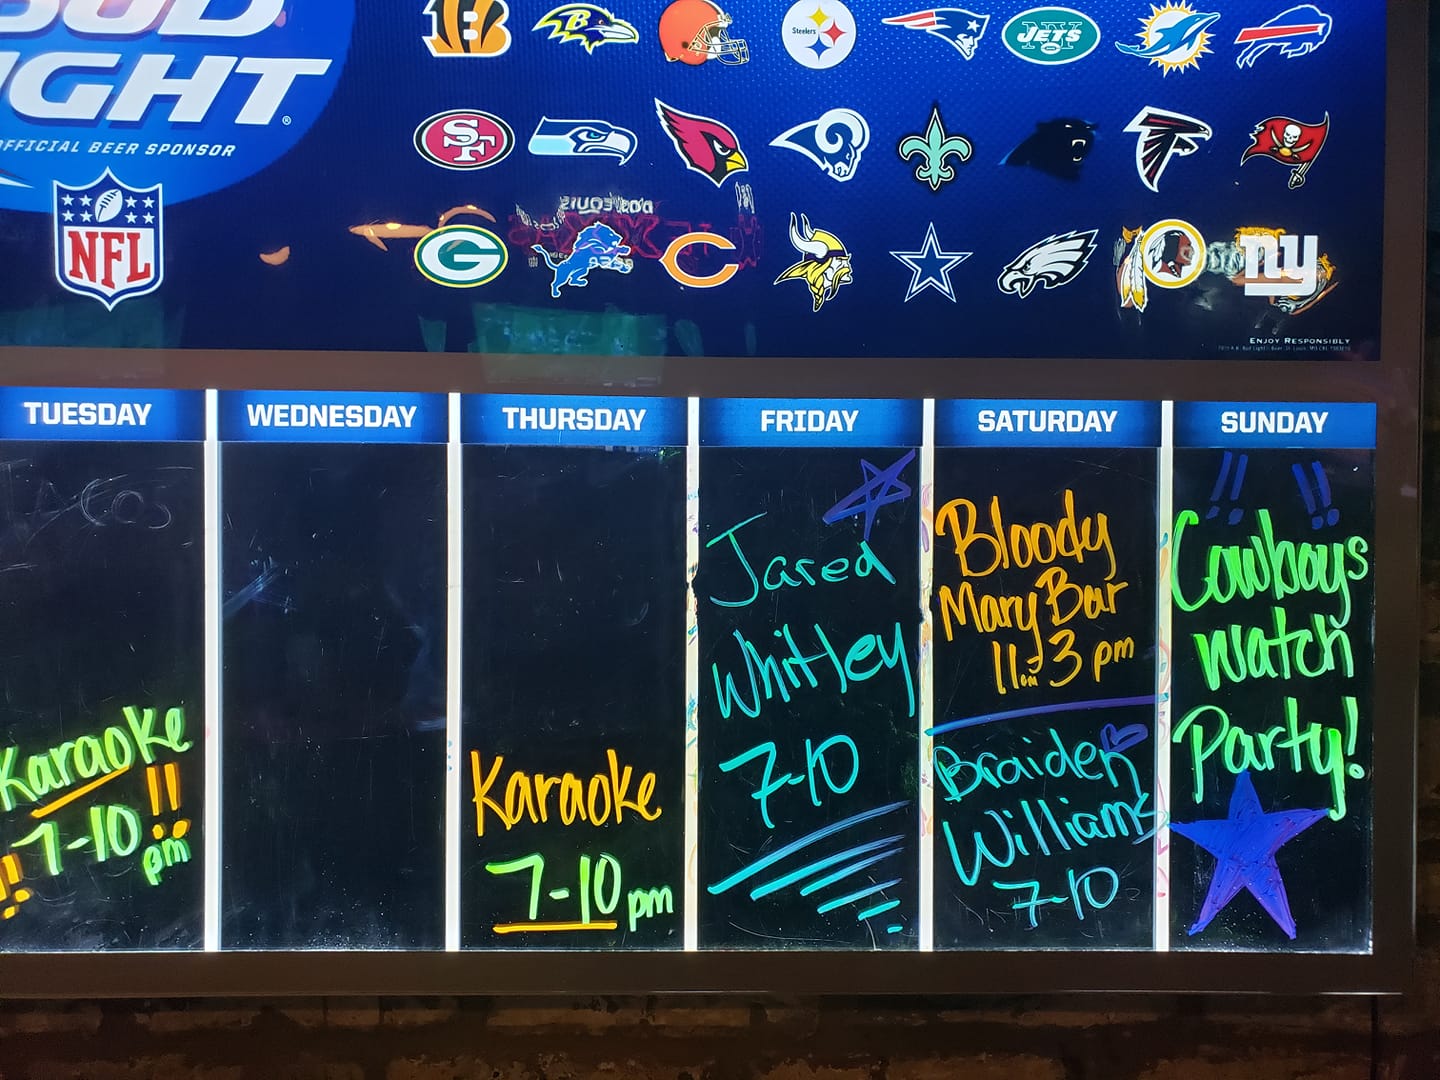 BUD
LIGHT
OFFICIAL BEER SPONSOR
NFL
B
B
Steelers
JETS
SF
G
C
ny
ENJOY RESPONSIBLY
TUESDAY
Karaoke
7-10 !!
pm
!!
WEDNESDAY
THURSDAY
Karaoke
7-10 pm
FRIDAY
Jared
Whitley
7-10
SATURDAY
Bloody
Mary Bar
11am-3pm
Braiden
Williams
7-10
SUNDAY
!! !!
Cowboys
watch
Party!